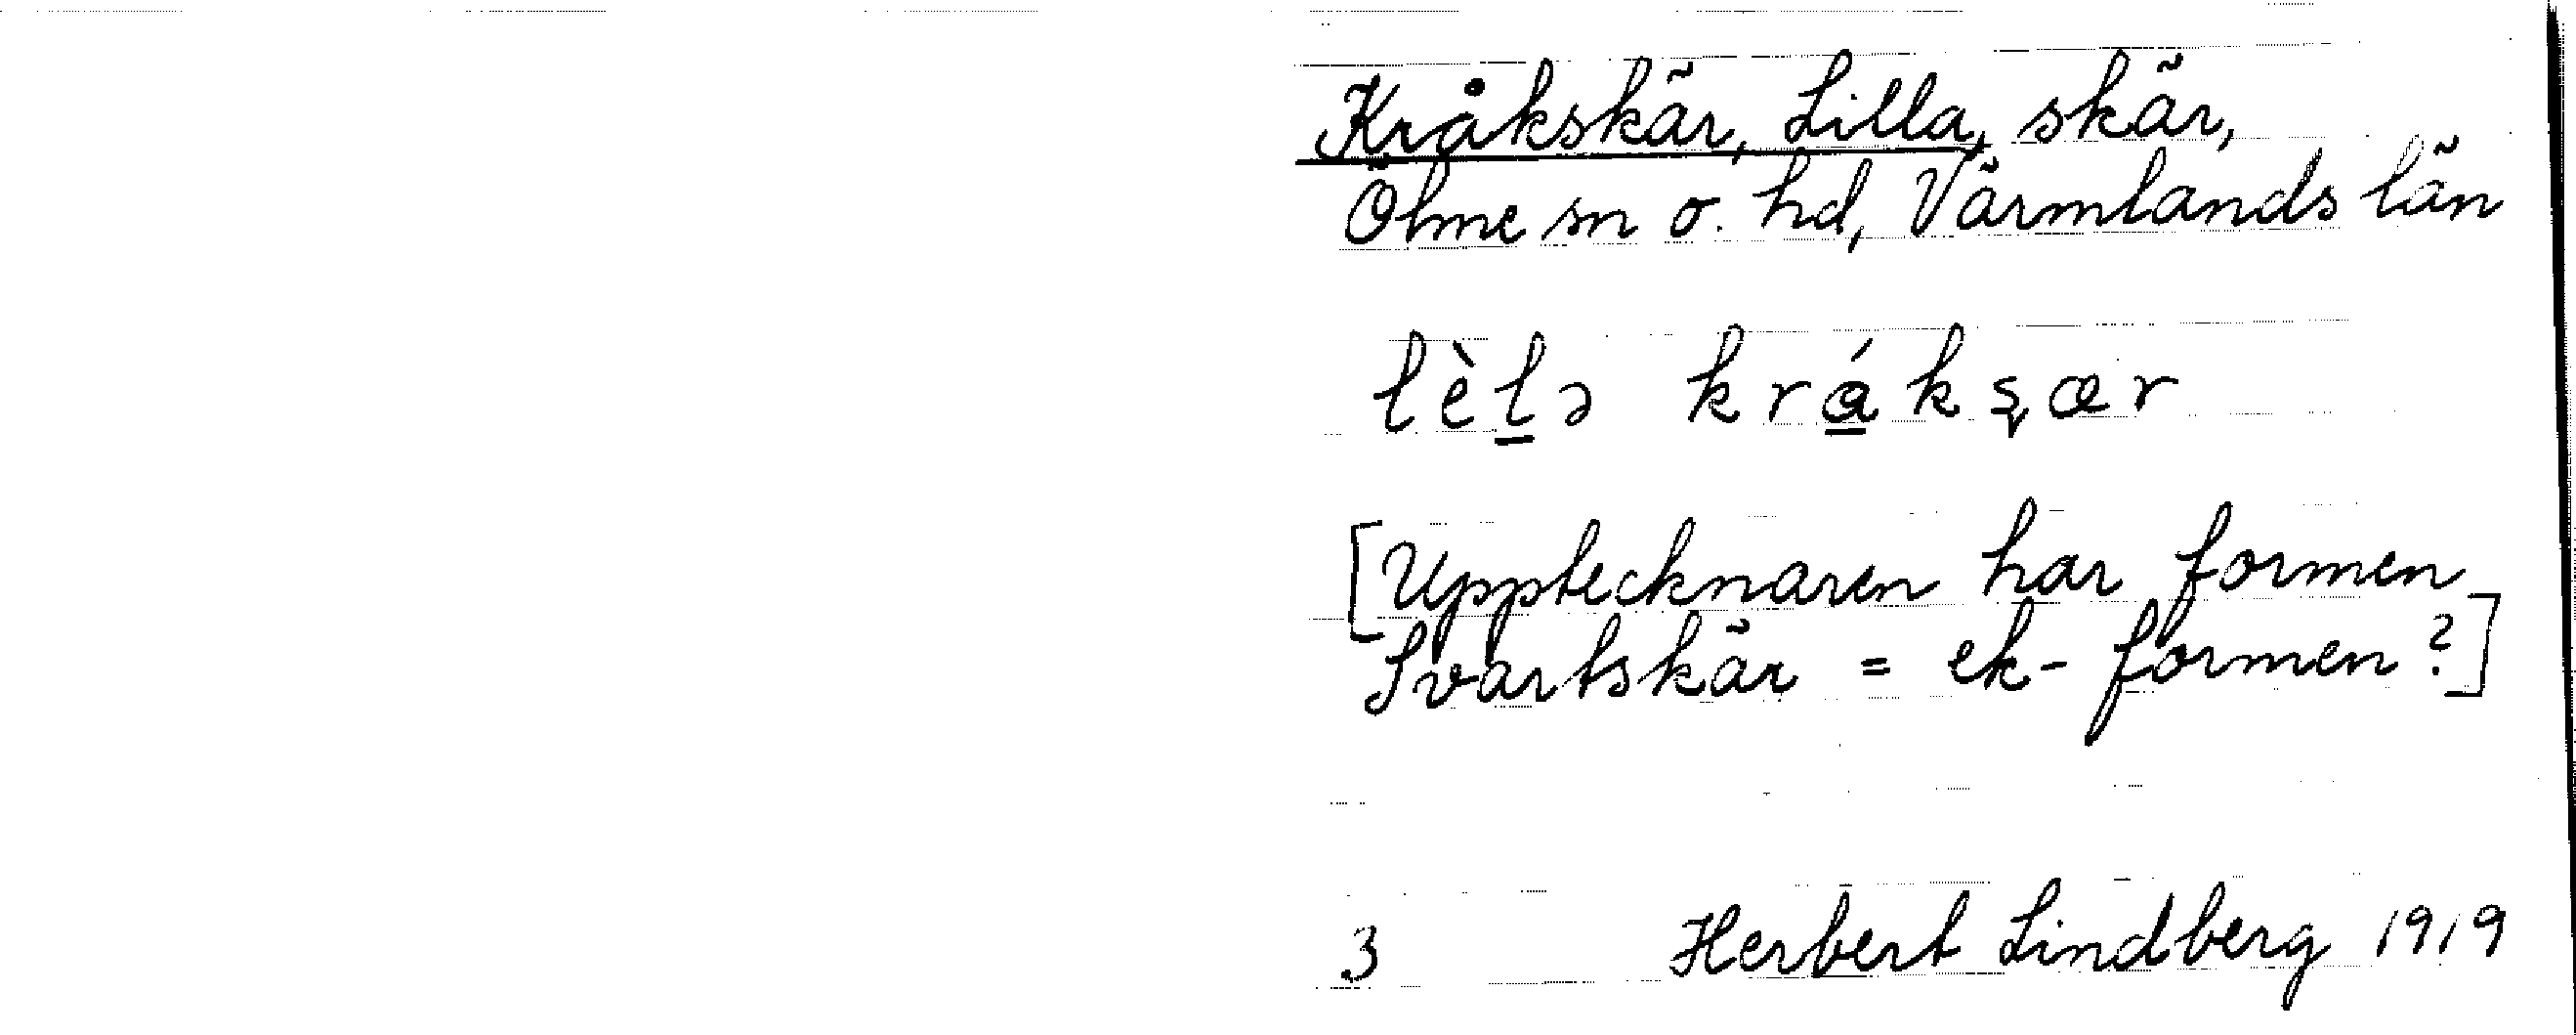 Kråkskär, Lilla, skär,
Ölme sn o. hd, Värmlands län
lèl̲ə krá̲kʂær
[Upptecknaren har formen
Svartskär = ek-formen?]
3 Herbert Lindberg 1919